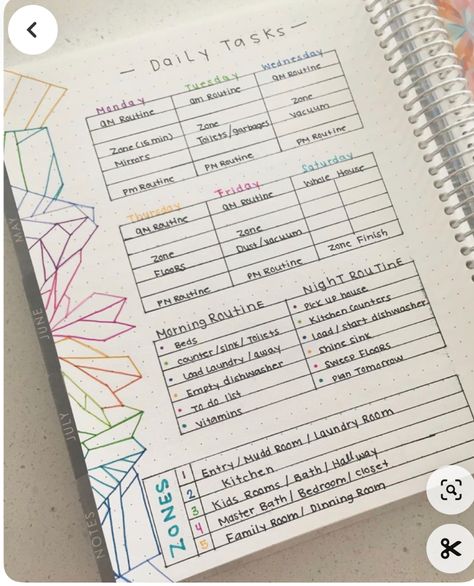 — Daily Tasks —
Monday Tuesday Wednesday
AM Routine am Routine AM Routine
Zone (15 min) Zone Zone
Mirrors Toilets/garbages Vacuum
Pm Routine PM Routine PM Routine
Thursday Friday Saturday
AM Routine AM Routine Whole House
Zone Zone
FLOORS Dust/vacuum
PM Routine PM Routine Zone Finish
Morning Routine
Beds
Counter/sink/Toilets
Load Laundry/away
Empty dishwasher
To do list
Vitamins
Night Routine
Pick up house
Kitchen Counters
Load/start dishwasher
Shine sink
Sweep Floors
Plan Tomorrow
ZONES
1 Entry/Mudd Room/Laundry Room
2 Kitchen
3 Kids Rooms/Bath/Hallway
4 Master Bath/Bedroom/Closet
5 Family Room/Dinning Room
MAY
JUNE
JULY
NOTES